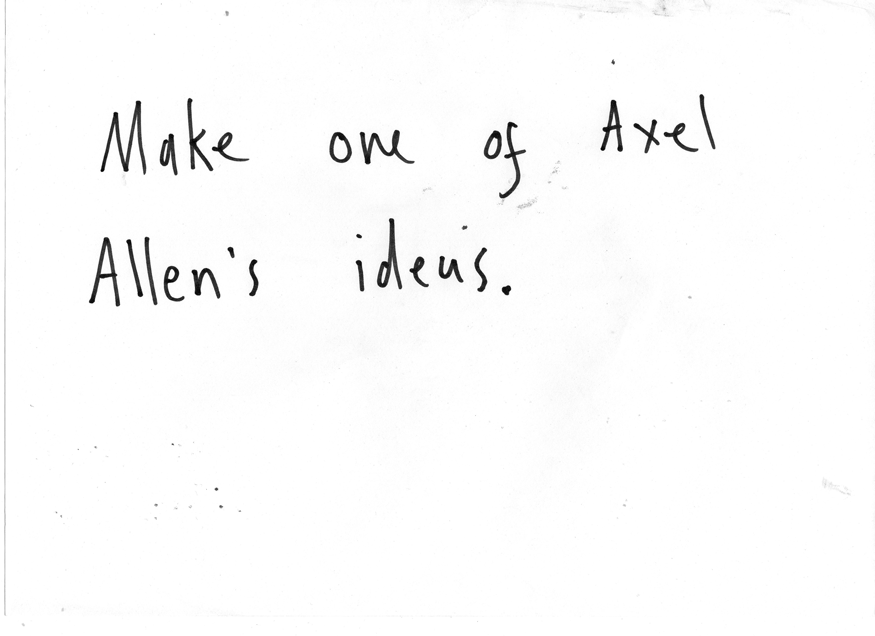 Make one of Axel
Allen's ideas.